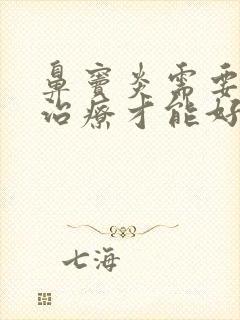 鼻窦炎需要
治療才能好
七海